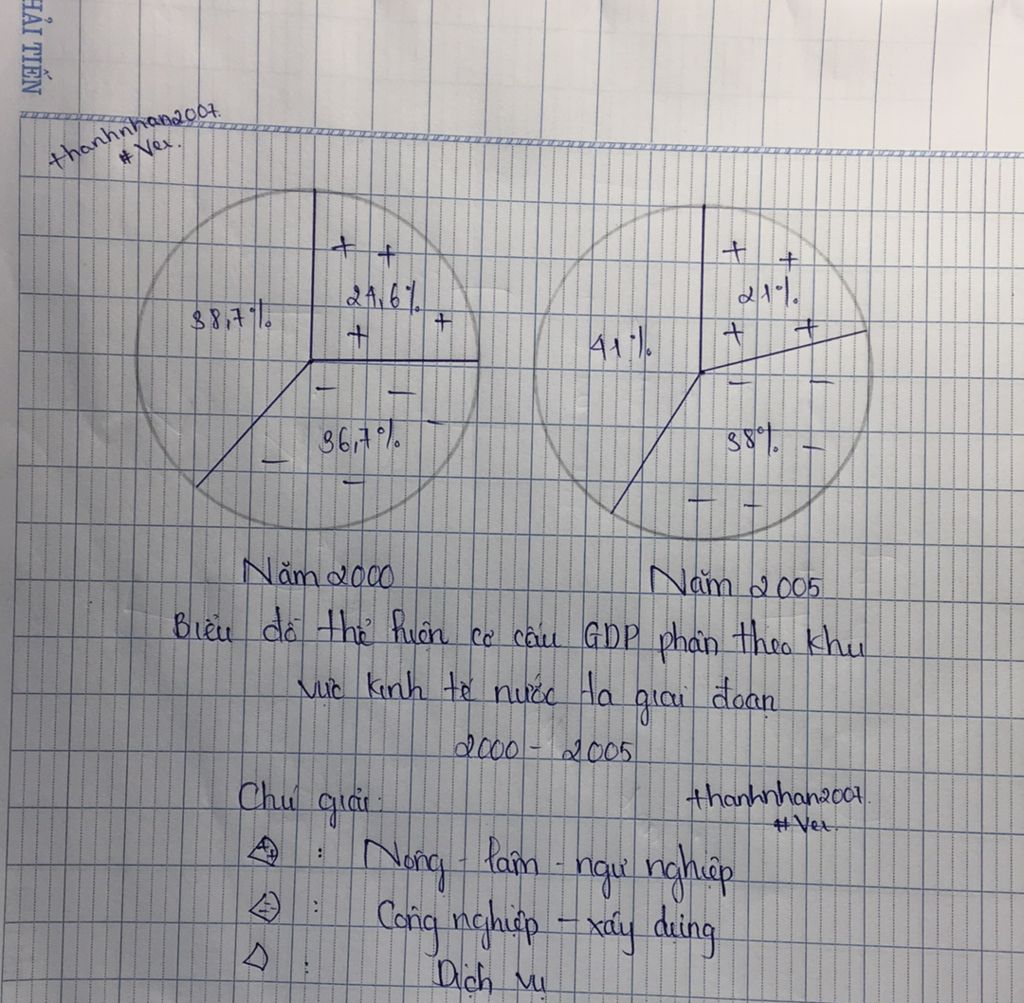 HẢI TIẾN
thanhnhan2007.
#Vex.
24,6%
38,7%
36,7%
21%
41%
38%
Năm 2000
Năm 2005
Biểu đồ thể hiện cơ cấu GDP phân theo khu
vực kinh tế nước ta giai đoạn
2000 - 2005
Chú giải:
thanhnhan2007.
#Vex.
: Nông - lâm - ngư nghiệp
: Công nghiệp - xây dựng
: Dịch vụ